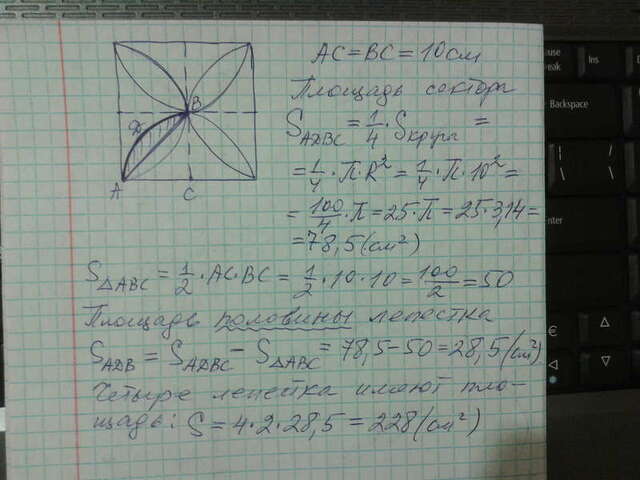 AC = BC = 10 см
Площадь сектора
S ADBC = 1/4 · S круга =
= 1/4 · П · R² = 1/4 · П · 10² =
= 100/4 · П = 25 · П = 25 · 3,14 =
= 78,5 (см²)
S △ABC = 1/2 · AC · BC = 1/2 · 10 · 10 = 100/2 = 50
Площадь половины лепестка
S ADB = S ADBC − S △ABC = 78,5 − 50 = 28,5 (см²)
Четыре лепестка имеют пло-
щадь: S = 4 · 2 · 28,5 = 228 (см²)
D
B
A
C
Backspace
Ins
enter
€